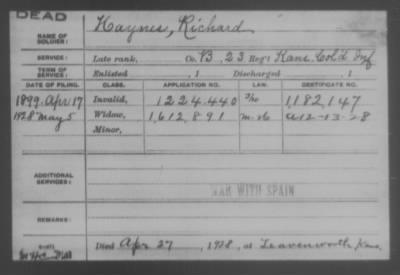 DEAD
NAME OF SOLDIER: Haynes, Richard
SERVICE: Late rank, Co. B, 23 Reg't Kans. Col'd Inf
TERM OF SERVICE: Enlisted , 1 Discharged , 1
DATE OF FILING. CLASS. APPLICATION NO. LAW. CERTIFICATE NO.
1899 Apr 17 Invalid, 1224.440 1,182,147
1928 May 5 Widow, 1,612,891 A12-13-28
Minor,
ADDITIONAL SERVICES:
WAR WITH SPAIN
REMARKS:
Died Apr 27, 1928, at Leavenworth Kans.